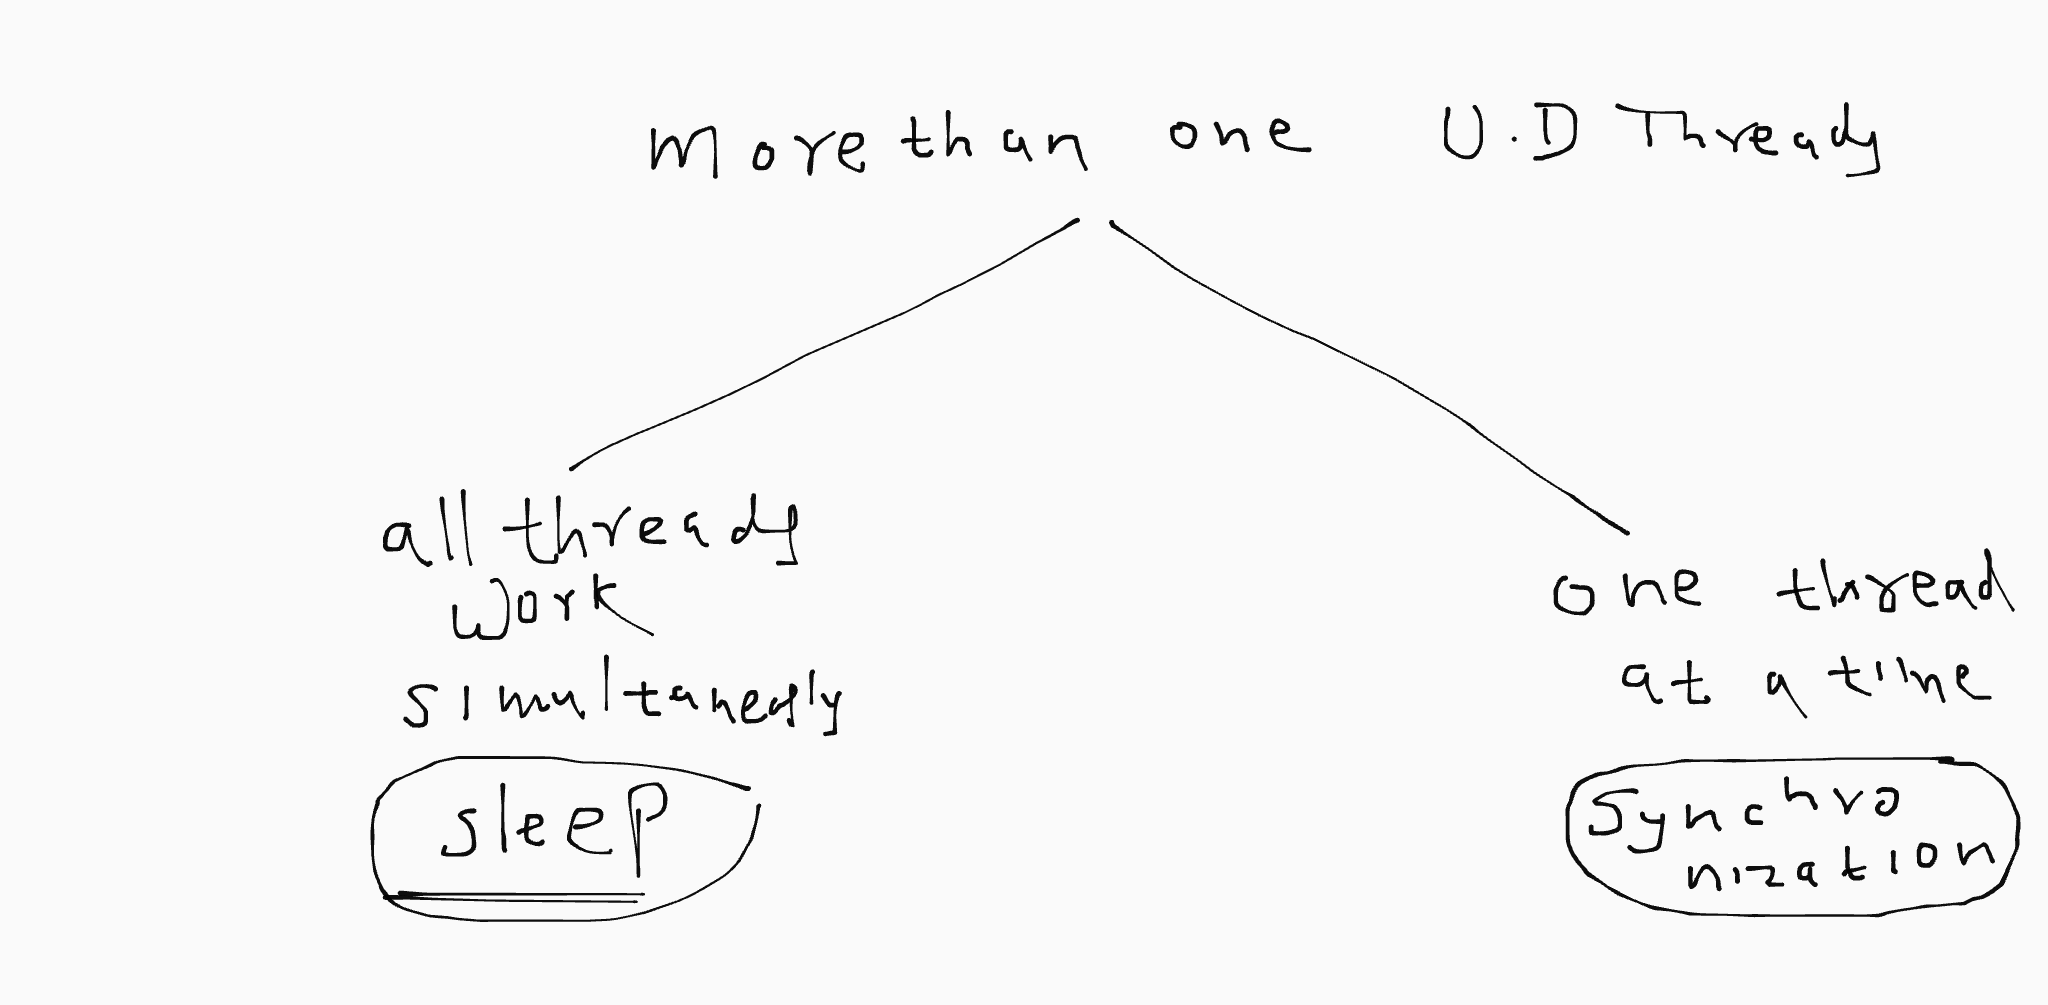 more than one U.D Threads
all threads
work
simultaneously
sleep
one thread
at a time
Synchro
nization